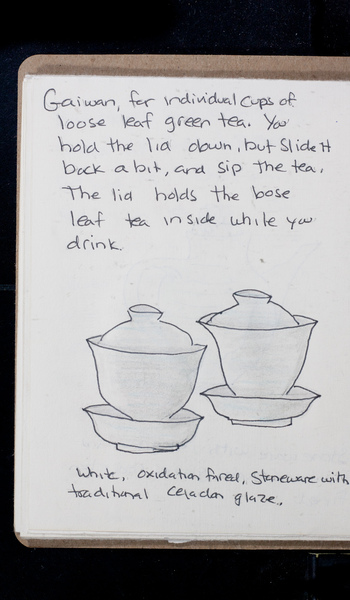 Gaiwan, for individual cups of
loose leaf green tea. You
hold the lid down, but slide it
back a bit, and sip the tea.
The lid holds the bose
leaf tea inside while you
drink.
White, oxidation fired, stoneware with
traditional celadon glaze.